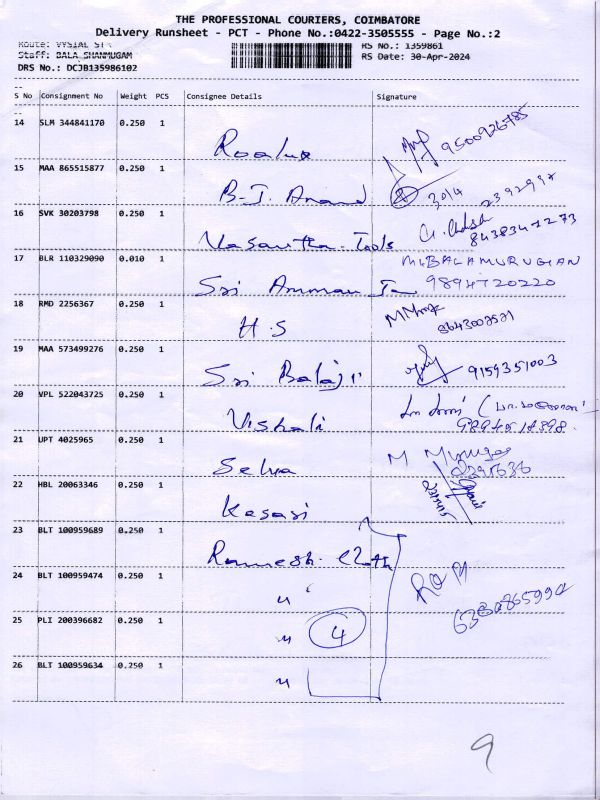 THE PROFESSIONAL COURIERS, COIMBATORE
Delivery Runsheet - PCT - Phone No.:0422-3505555 - Page No.:2
Route: VYSIAL ST RS No.: 1359861
Staff: BALA SHANMUGAM RS Date: 30-Apr-2024
DRS No.: DCJB135986102
S No Consignment No Weight PCS Consignee Details Signature
14 SLM 344841170 0.250 1
9500926785
15 MAA 865515877 0.250 1 B-J. Anand 30/4
16 SVK 30203798 0.250 1 Vasantha Tools
17 BLR 110329090 0.010 1 Sri Amman M.BALAMURUGAN
9894720220
18 RMD 2256367 0.250 1 H.S
19 MAA 573499276 0.250 1 Sri Balaji 9159351003
20 VPL 522043725 0.250 1 Vishali
21 UPT 4025965 0.250 1 Selva
22 HBL 20063346 0.250 1 Kesari
23 BLT 100959689 0.250 1 Ramesh Cloth
24 BLT 100959474 0.250 1 "
25 PLI 200396682 0.250 1 " 4
26 BLT 100959634 0.250 1 "
9